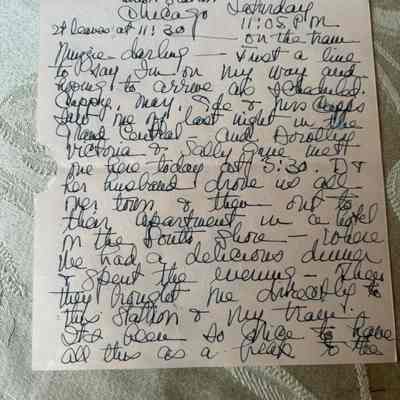 Chicago Saturday
It leaves at 11:30 11:05 P.M.
on the train
darling — Just a line
to say I'm on my way and
hoping to arrive as scheduled.
Cappy, May, & Miss Capps
met me last night in the
Grand Central — and Dorothy
Victoria & Sally Jane met
me here today at 3:30. D &
her husband drove us all
over town & then out to
their apartment in a hotel
on the South Shore — where
we had a delicious dinner
& spent the evening — Then
they brought me directly to
this station & my train.
It's been so nice to have
all this as a break to the